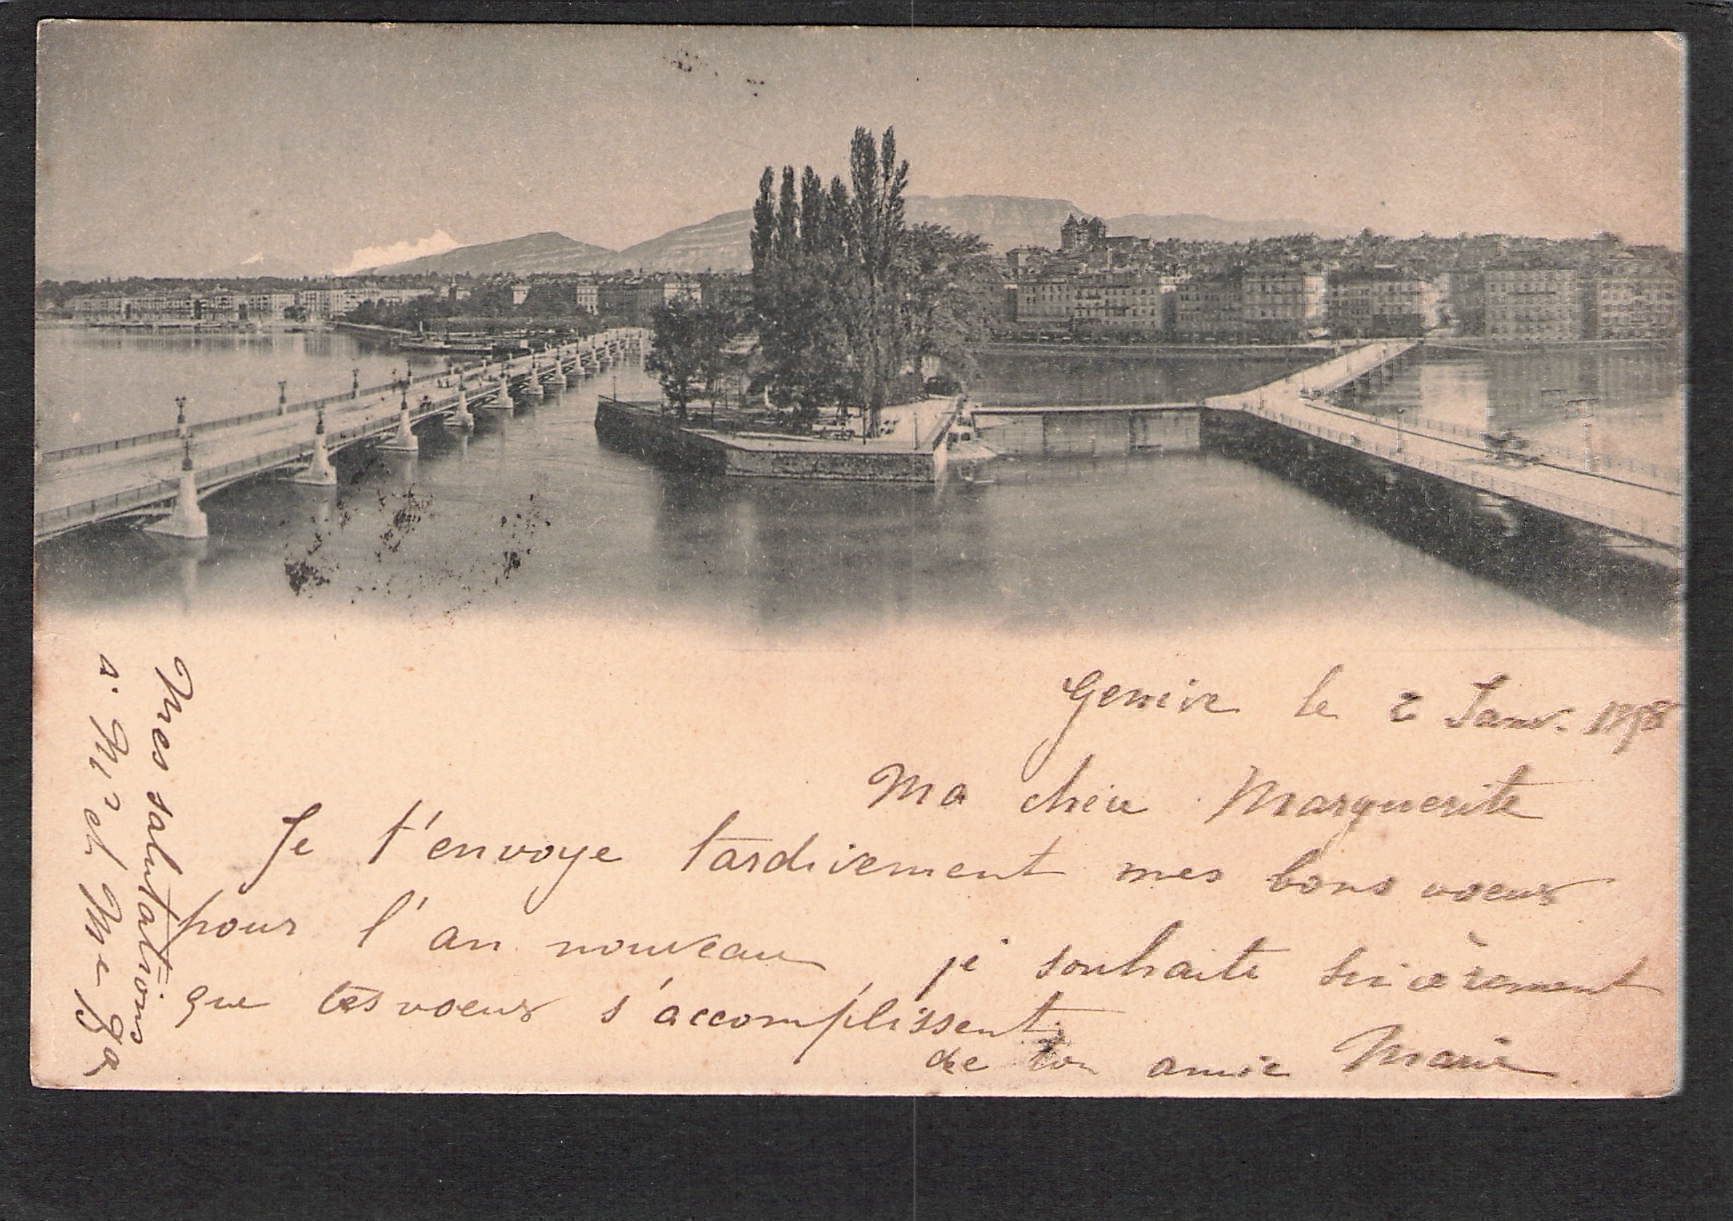 Genève le 2 Janv. 1898
Ma chère Marguerite
Je t'envoye tardivement mes bons voeux
pour l'an nouveau je souhaite sincèrement
que tes voeux s'accomplissent
de ton amie Marie
Mes salutations
à Mr et Me